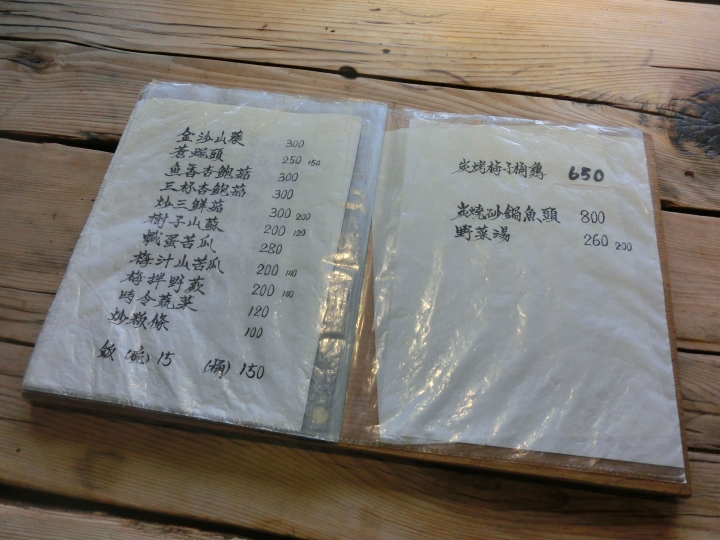 金沙山藥 300
蒼蠅頭 250 150
魚香杏鮑菇 300
三杯杏鮑菇 300
炒三鮮菇 300 200
樹子山蘇 200 120
鹹蛋苦瓜 280
梅汁山苦瓜 200 140
梅拌野蕨 200 140
時令蔬菜 120
炒粄條 100
飯(碗) 15 (桶) 150
炭烤梅子桶鷄 650
炭燒砂鍋魚頭 800
野菜湯 260 200